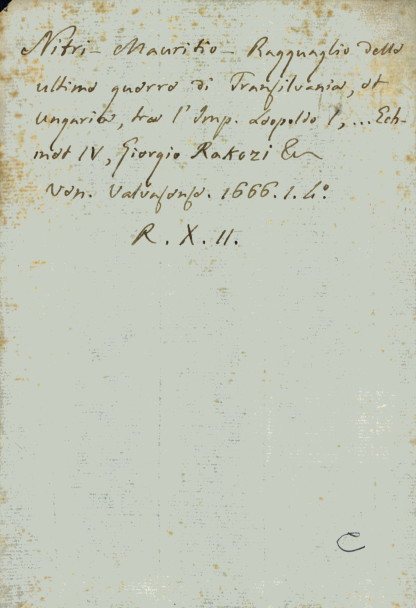 Nitri - Mauritio - Ragguaglio delle
ultime guerre di Transilvania, et
ungaria, tra l'Imp. Leopoldo I, ... Ech-
met IV, Giorgio Rakozi &
Ven. Valvasense. 1666. 1. 4°.
R. X. 11.
C